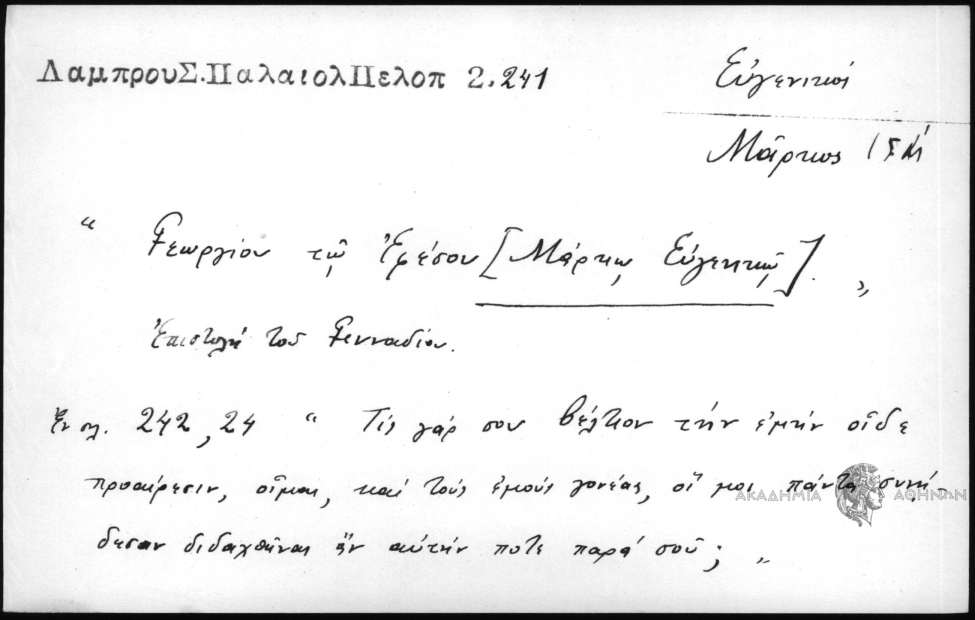 ΛαμπρουΣ.ΠαλαιολΠελοπ 2.241
Εὐγενικοί
Μᾶρκος
“ Γεωργίου τῷ Ἐφέσου [Μάρκῳ Εὐγενικῷ]. „
Ἐπιστολὴ τοῦ Γενναδίου.
Ἐν σλ. 242,24 “ Τίς γάρ σου βέλτιον τὴν ἐμὴν οἶδε
προαίρεσιν, οἶμαι, καὶ τοὺς ἐμοὺς γονέας, οἵ μοι πάντα συνῄ-
δεσαν διδαχθῆναι ἂν αὐτήν ποτε παρὰ σοῦ; „
ΑΚΑΔΗΜΙΑ ΑΘΗΝΩΝ